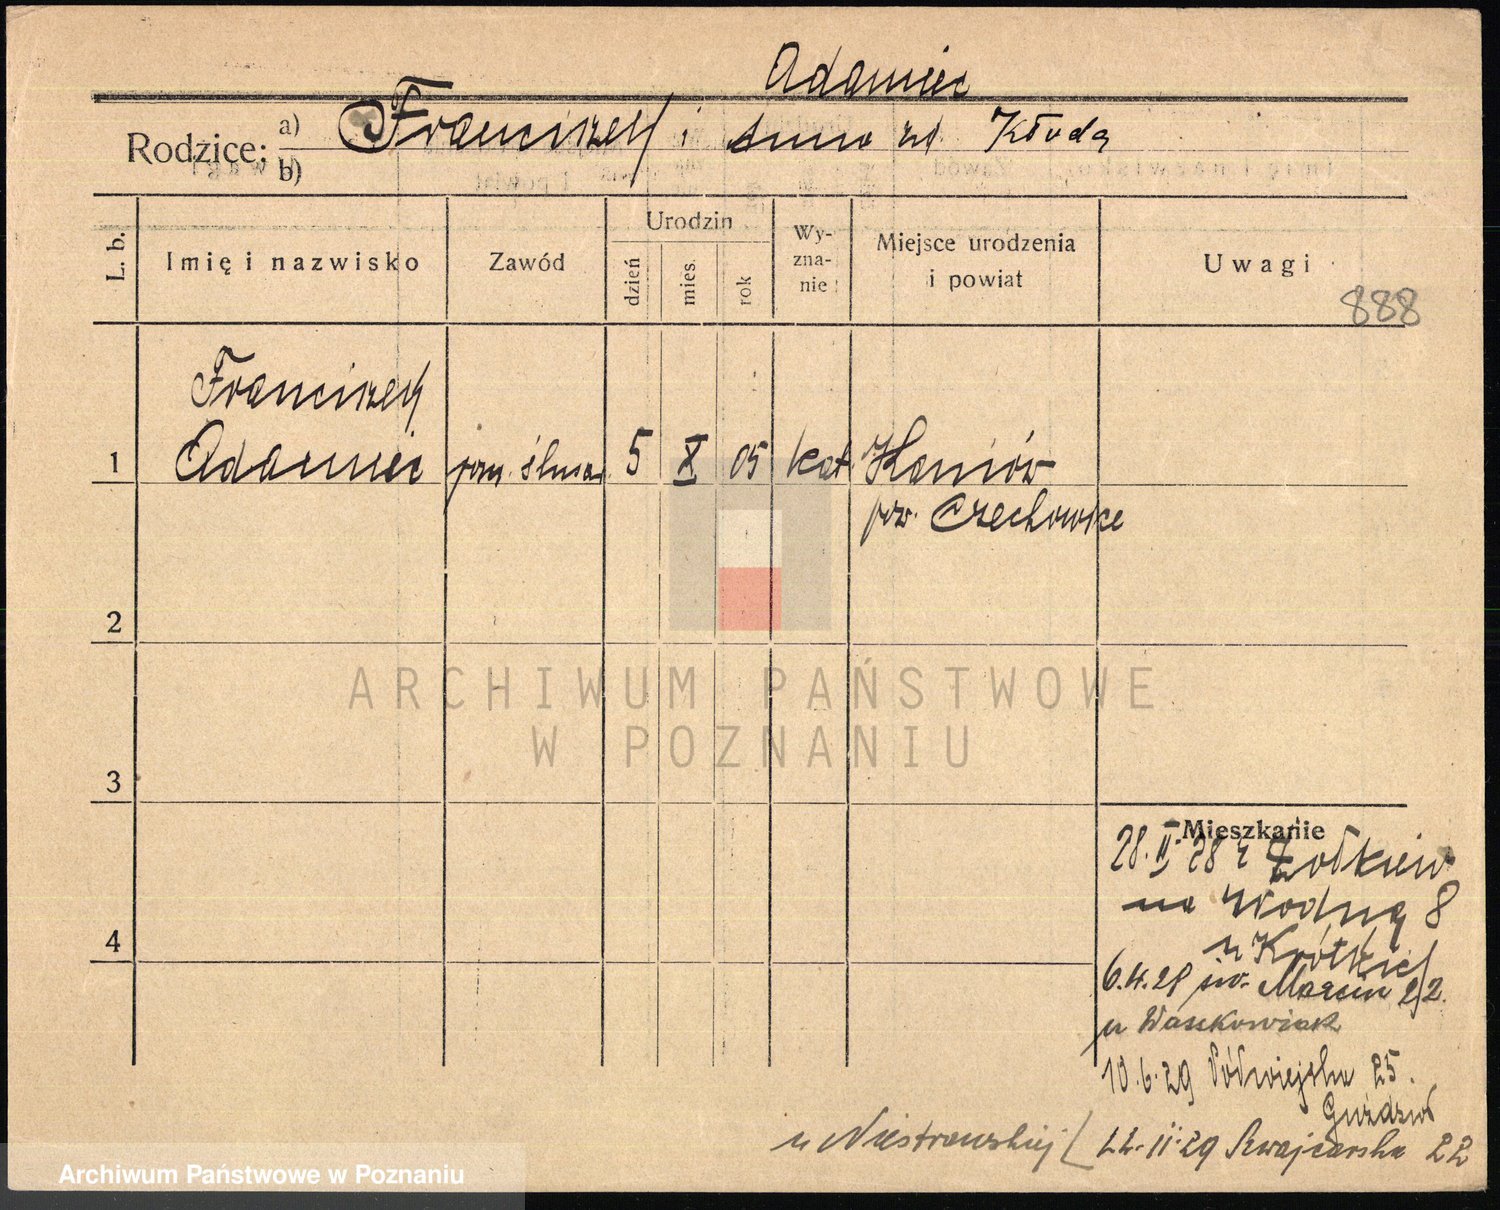 Adamiec
Rodzice: a) Franciszek i Anna zd. Kłuda
b)
L. b.
Imię i nazwisko
Zawód
Urodzin
dzień
mies.
rok
Wy-
zna-
nie
Miejsce urodzenia
i powiat
Uwagi
888
Franciszek
1 Adamiec pom. ślusar. 5 X 05 kat. Haniów
pow. Czechowice
2
3
4
ARCHIWUM PAŃSTWOWE
W POZNANIU
Mieszkanie
28. II. 28 z Żółkiew
na Wodną 8
u Krótkiej
św. Marcin 2/2.
u Waszkowiak
10.6.29 Półwiejska 25.
u 22.11.29 Szwajcarska 22
Archiwum Państwowe w Poznaniu